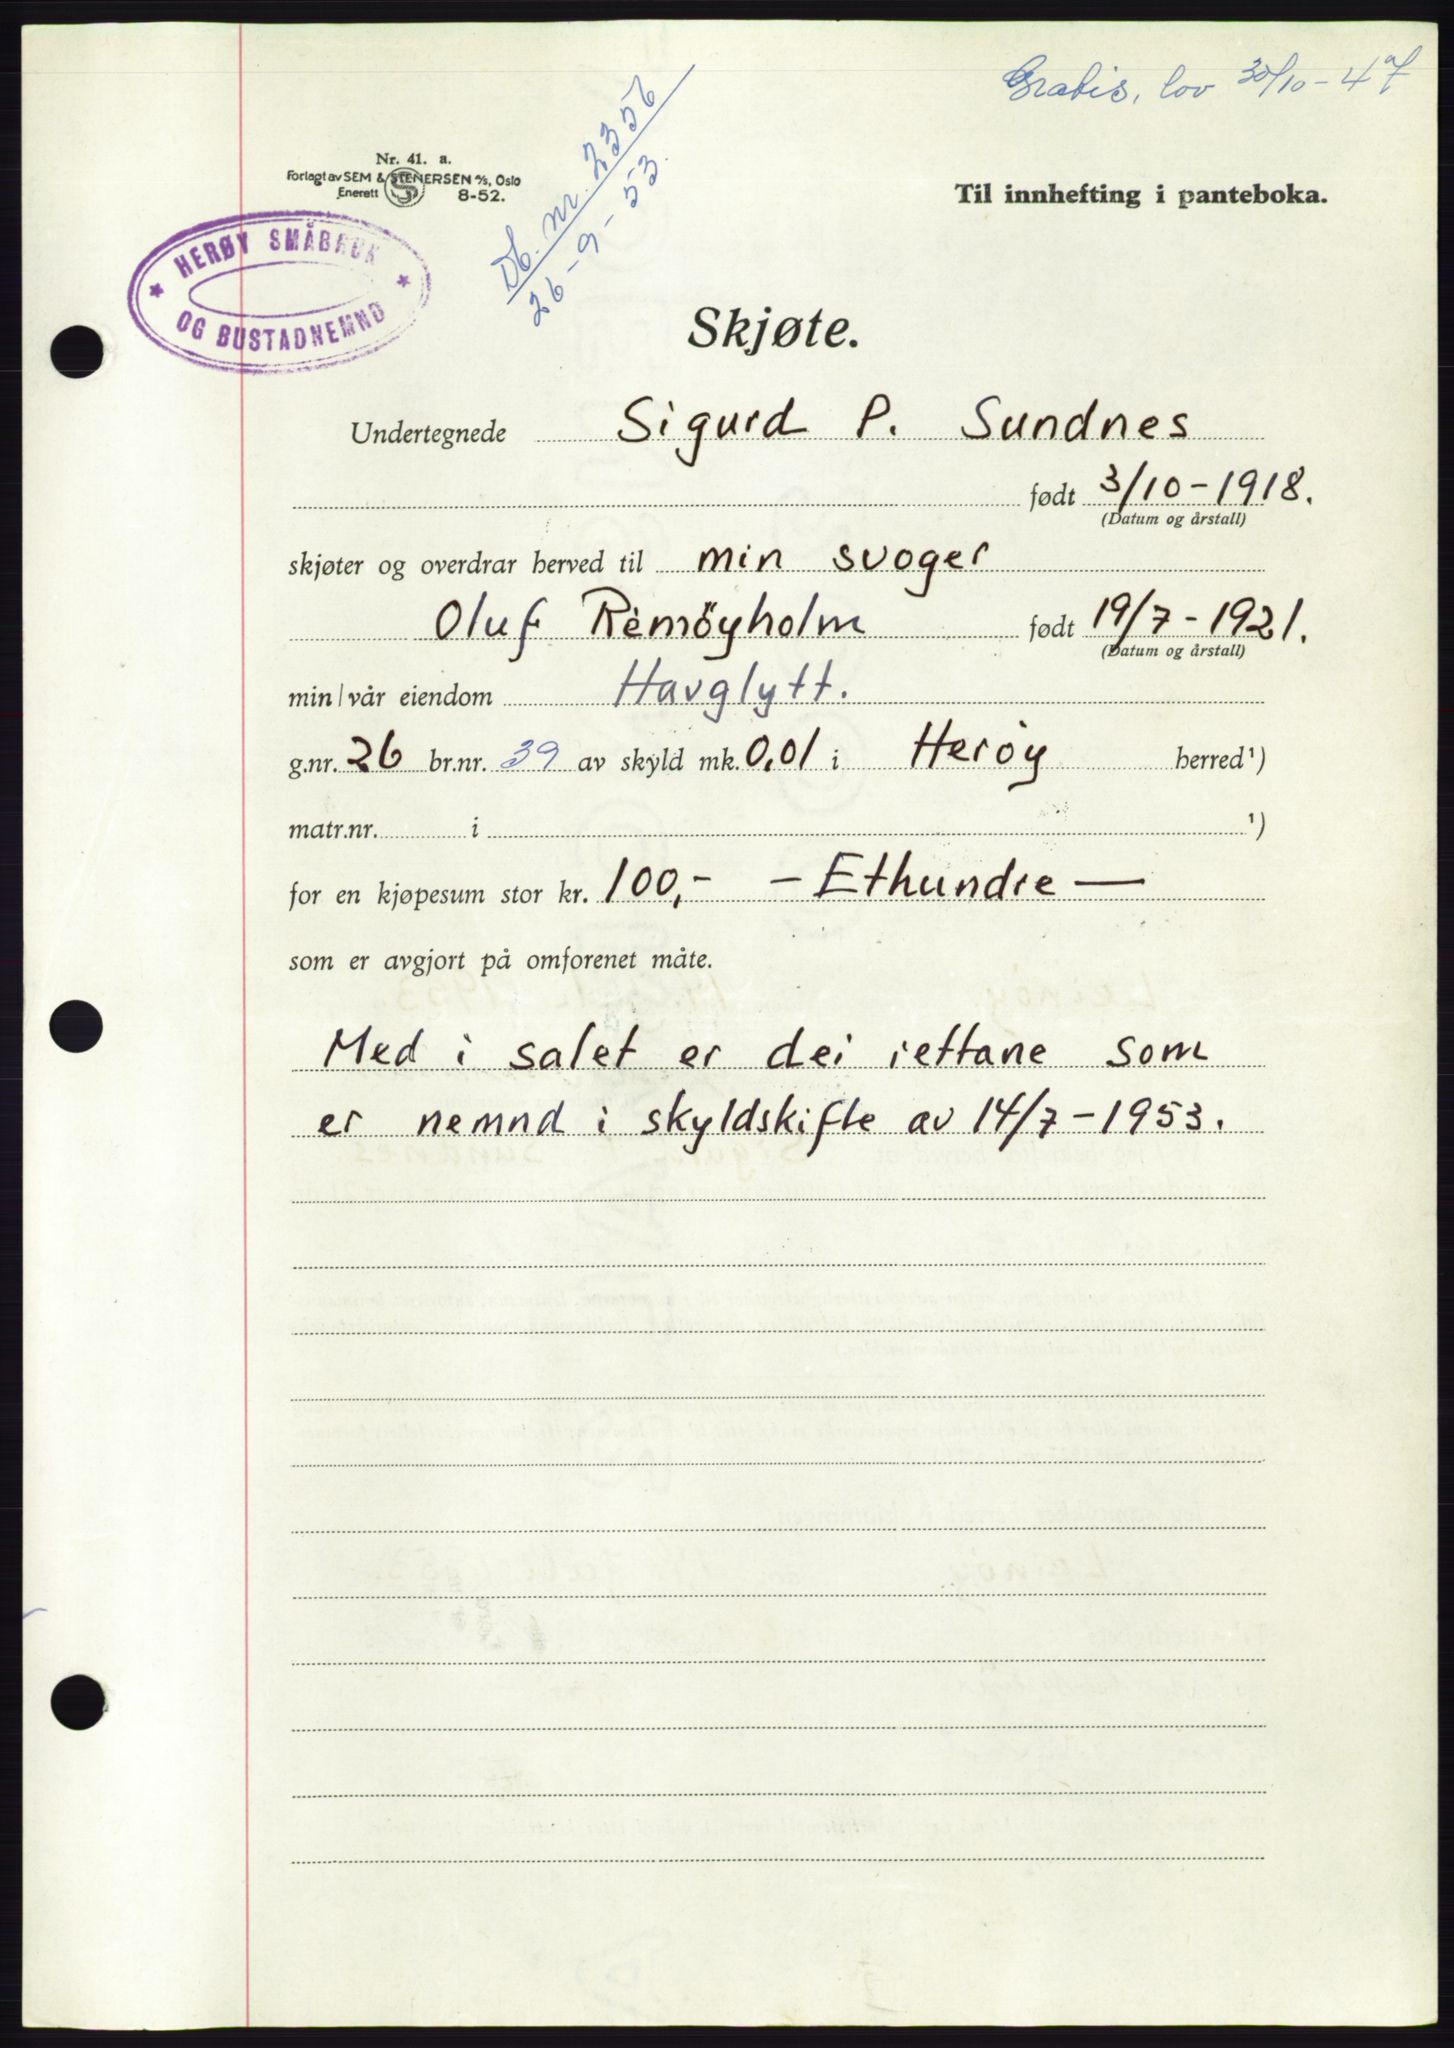 Gratis, lov 30/10-47
Nr. 41. a.
Forlagt av SEM & STENERSEN A/S, Oslo
Enerett 8-52.
Db. nr. 2356
26-9-53.
Til innhefting i panteboka.
HERØY SMÅBRUK
OG BUSTADNEMND
Skjøte.
Undertegnede Sigurd P. Sundnes
født 3/10-1918.
(Datum og årstall)
skjøter og overdrar herved til min svoger
Oluf Remöyholm født 19/7-1921.
(Datum og årstall)
min/vår eiendom Havglytt.
g.nr. 26 br.nr. 39 av skyld mk. 0,01 i Herøy herred¹)
matr.nr. i ¹)
for en kjøpesum stor kr. 100,- - Ethundre —
som er avgjort på omforenet måte.
Med i salet er dei rettane som
er nemnd i skyldskifte av 14/7-1953.